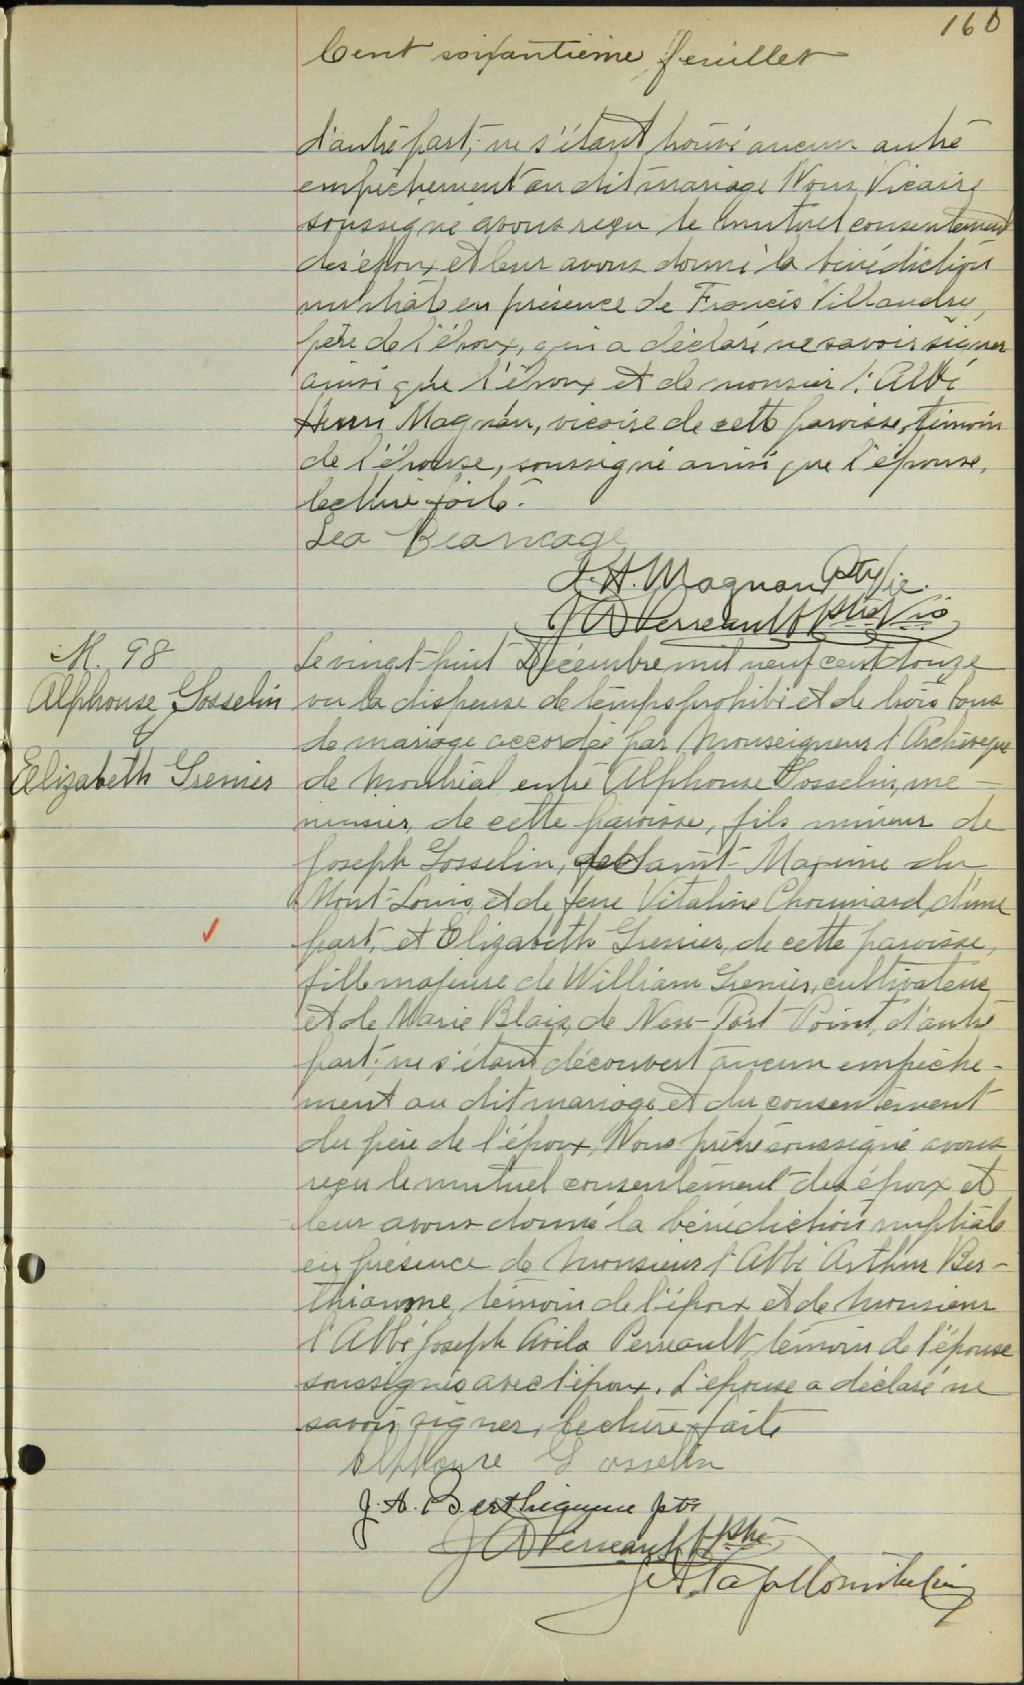 160
Cent soixantième feuillet
d'autre part; ne s'étant trouvé aucun autre
empêchement au dit mariage Nous Vicaire
soussigné avons reçu le mutuel consentement
des époux et leur avons donné la bénédiction
nuptiale en présence de Francis Villandry,
père de l'époux, qui a déclaré ne savoir signer
ainsi que l'époux et de monsieur l'Abbé
Henri Magnan, vicaire de cette paroisse, témoin
de l'épouse, soussigné ainsi que l'épouse.
lecture faite.
Lea Beaucage
J. H. Magnan Ptre Vic.
J A Perreault Ptre Vic
M. 98
Alphonse Gosselin
&
Elizabeth Grenier
Le vingt-huit Décembre mil neuf cent douze
vu la dispense de temps prohibé et de trois bans
de mariage accordée par Monseigneur l'Archevêque
de Montréal entre Alphonse Gosselin, me-
nuisier, de cette paroisse, fils mineur de
Joseph Gosselin, de Saint-Maxime du
Mont-Louis, et de feue Vitaline Chouinard, d'une
part, et Elizabeth Grenier, de cette paroisse,
fille majeure de William Grenier, cultivateur
et de Marie Blais, de New-Port Point, d'autre
part; ne s'étant découvert aucun empêche-
ment au dit mariage et du consentement
du père de l'époux, Nous prêtre soussigné avons
reçu le mutuel consentement des époux et
leur avons donné la bénédiction nuptiale
en présence de Monsieur l'Abbé Arthur Ber-
thiaume, témoin de l'époux et de Monsieur
l'Abbé Joseph Avila Perreault, témoin de l'épouse
soussignés avec l'époux. L'épouse a déclaré ne
savoir signer, lecture faite
Alphonse Gosselin
J. A. Berthiaume ptre
J A Perreault Ptre